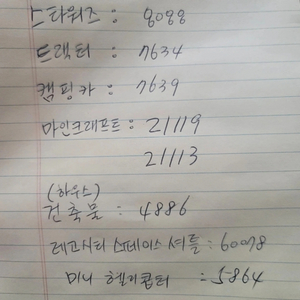 스타워즈 : 8088
트랙터 : 7634
캠핑카 : 7639
마인크래프트 : 21119
21113
(하우스)
건축물 : 4886
레고시티 스페이스 셔틀 : 60078
미니 헬리콥터 : 5864